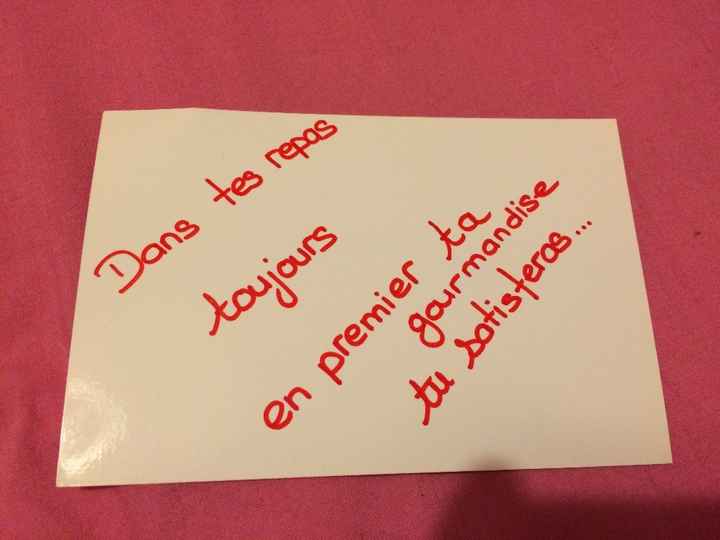 Dans tes repas
toujours
en premier ta
gourmandise
tu satisferas...